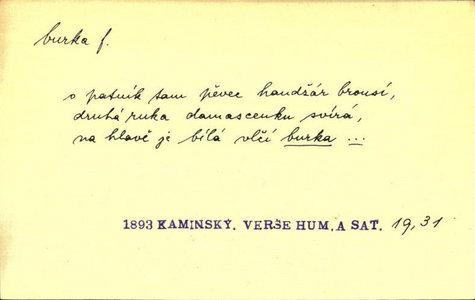 burka f.
o patník tam pěvec handžár brousí,
druhá ruka damascenku svírá,
na hlavě je bílá vlčí burka ...
1893 KAMINSKÝ. VERŠE HUM. A SAT. 19, 31